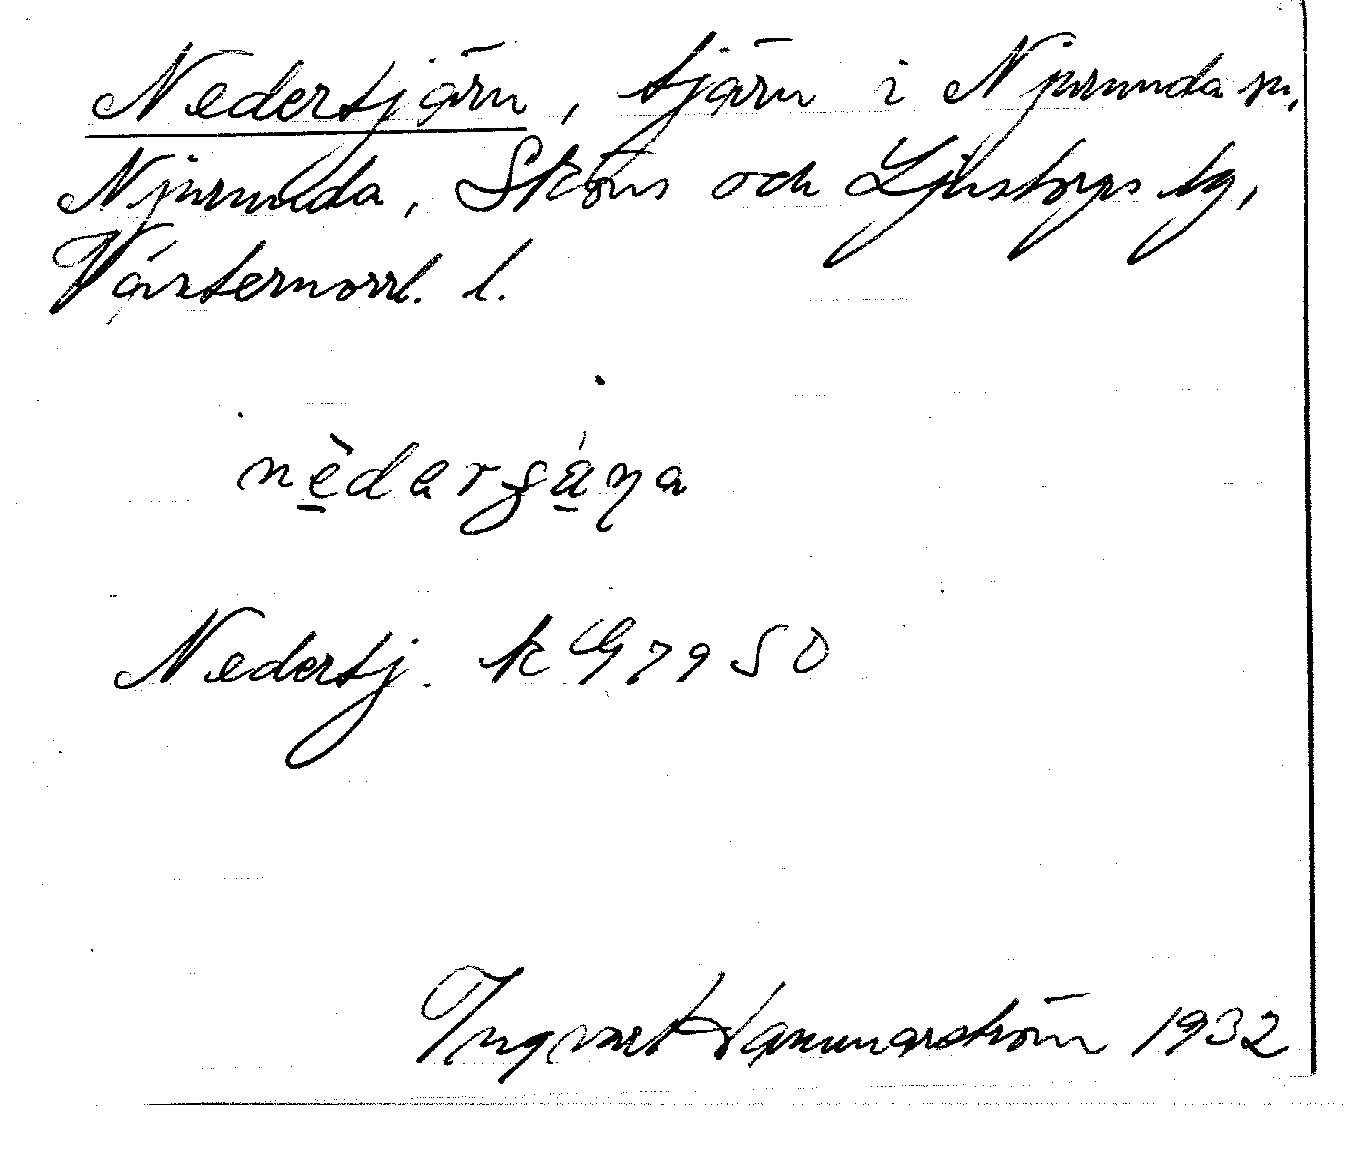 Nedertjärn, tjärn i Njurunda sn,
Njurunda, Sköns och Ljustorps tg,
Västernorrl. l.
Nedertj. k G7950
Ingvart Hammarström 1932